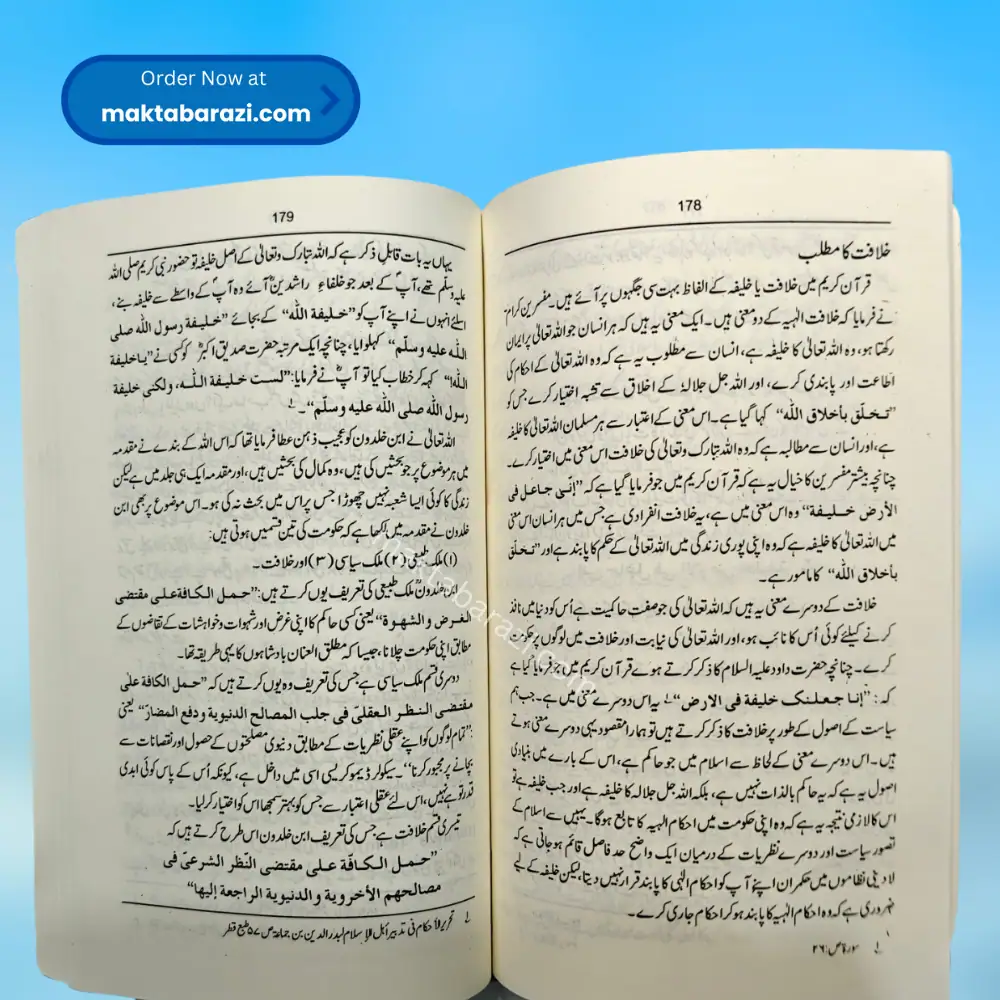 Order Now at
maktabarazi.com
178
خلافت کا مطلب
قرآن کریم میں خلافت یا خلیفہ کے الفاظ بہت سی جگہوں پر آئے ہیں۔ مفسرین کرام
نے فرمایا کہ خلافت الٰہیہ کے دو معنی ہیں۔ ایک معنی یہ ہیں کہ ہر انسان جو اللہ تعالیٰ پر ایمان
رکھتا ہو، وہ اللہ تعالیٰ کا خلیفہ ہے، انسان سے مطلوب یہ ہے کہ وہ اللہ تعالیٰ کے احکام کی
اطاعت اور پابندی کرے، اور اللہ جل جلالہٗ کے اخلاق سے تشبہ اختیار کرے جس کو
”تخلّق بأخلاق اللّٰه“ کہا گیا ہے۔ اس معنی کے اعتبار سے ہر مسلمان اللہ تعالیٰ کا خلیفہ
ہے، اور انسان سے مطالبہ ہے کہ وہ اللہ تبارک وتعالیٰ کی خلافت اس معنی میں اختیار کرے۔
چنانچہ بیشتر مفسرین کا خیال یہ ہے کہ قرآن کریم میں جو فرمایا گیا ہے کہ ”إنّی جاعل فی
الأرض خلیفة“ وہ اس معنی میں ہے، یہ خلافت انفرادی ہے جس میں ہر انسان اس معنی
میں اللہ تعالیٰ کا خلیفہ ہے کہ وہ اپنی پوری زندگی میں اللہ تعالیٰ کے حکم کا پابند ہے اور ”تخلّق
بأخلاق اللّٰه“ کا مامور ہے۔
خلافت کے دوسرے معنی یہ ہیں کہ اللہ تعالیٰ کی جو صفت حاکمیت ہے اُس کو دنیا میں نافذ
کرنے کیلئے کوئی اُس کا نائب ہو، اور اللہ تعالیٰ کی نیابت اور خلافت میں لوگوں پر حکومت
کرے۔ چنانچہ حضرت داود علیہ السلام کا ذکر کرتے ہوے قرآن کریم میں جو فرمایا گیا ہے
کہ: ”إنا جعلنٰک خلیفة فی الارض“ ؂۱ یہ اس دوسرے معنی میں ہے۔ جب ہم
سیاست کے اصول کے طور پر خلافت کا ذکر کرتے ہیں تو ہمارا مقصود یہی دوسرے معنی ہوتے
ہیں۔ اس دوسرے معنی کے لحاظ سے اسلام میں جو حاکم ہے، اس کے بارے میں بنیادی
اصول یہ ہے کہ یہ حاکم بالذات نہیں ہے، بلکہ اللہ جل جلالہ کا خلیفہ ہے اور جب خلیفہ ہے تو
اس کا لازمی نتیجہ یہ ہے کہ وہ اپنی حکومت میں احکام الٰہیہ کا تابع ہوگا۔ یہیں سے اسلام کے
تصور سیاست اور دوسرے نظریات کے درمیان ایک واضح حد فاصل قائم ہوجاتی ہے کہ
لادینی نظاموں میں حکمران اپنے آپ کو احکام الٰہی کا پابند قرار نہیں دیتا، لیکن خلیفہ کے لیے
ضروری ہے کہ وہ احکام الٰہیہ کا پابند ہو کر احکام جاری کرے۔
؂۱ سورۂ ص: ۲۶
179
یہاں یہ بات قابل ذکر ہے کہ اللہ تبارک وتعالیٰ کے اصل خلیفہ تو حضور نبی کریم صلی اللہ
علیہ وسلّم تھے، آپؐ کے بعد جو خلفاءِ راشدین آئے وہ آپؐ کے واسطے سے خلیفہ بنے،
اسلئے انہوں نے اپنے آپ کو ”خلیفة اللّٰه“ کے بجائے ”خلیفة رسول اللّٰه صلی
اللّٰه علیه وسلّم“ کہلوایا، چنانچہ ایک مرتبہ حضرت صدیق اکبرؓ کو کسی نے ”یاخلیفة
اللّٰه!“ کہہ کر خطاب کیا تو آپؓ نے فرمایا: ”لست خلیفة اللّٰه، ولکنی خلیفة
رسول اللّٰه صلی اللّٰه علیه وسلّم“۔ ؂۱
اللہ تعالیٰ نے ابن خلدون کو عجیب ذہن عطا فرمایا تھا کہ اس اللہ کے بندے نے مقدمہ
میں ہر موضوع پر جو بحثیں کی ہیں، وہ کمال کی بحثیں ہیں، اور مقدمہ ایک ہی جلد میں ہے لیکن
زندگی کا کوئی ایسا شعبہ نہیں چھوڑا جس پر اس میں بحث نہ کی ہو۔ اس موضوع پر بھی ابن
خلدون نے مقدمہ میں لکھا ہے کہ حکومت کی تین قسمیں ہوتی ہیں:
(۱) ملک طبیعی (۲) ملک سیاسی (۳) اور خلافت۔
ابن خلدونؒ ملک طبیعی کی تعریف یوں کرتے ہیں: ”حمل الکافة علی مقتضی
الغرض والشهوة“ یعنی کسی حاکم کا اپنی غرض اور شہوات وخواہشات کے تقاضوں کے
مطابق اپنی حکومت چلانا، جیسا کہ مطلق العنان بادشاہوں کا یہی طریقہ تھا۔
دوسری قسم ملک سیاسی ہے جس کی تعریف وہ یوں کرتے ہیں کہ ”حمل الکافة علی
مقتضی النظر العقلیّ فی جلب المصالح الدنیویة ودفع المضارّ“ یعنی
:”تمام لوگوں کو اپنے عقلی نظریات کے مطابق دنیوی مصلحتوں کے حصول اور نقصانات سے
بچانے پر مجبور کرنا“۔ سیکولر ڈیموکریسی اسی میں داخل ہے، کیونکہ اُس کے پاس کوئی ابدی
قدر تو ہے نہیں، اس لئے عقلی اعتبار سے جس کو بہتر سمجھا اس کو اختیار کر لیا۔
تیسری قسم خلافت ہے جس کی تعریف ابن خلدون اس طرح کرتے ہیں کہ
”حمل الکافّة علی مقتضی النّظر الشرعیّ فی
مصالحهم الأخرویة و الدنیویة الراجعة إلیها“
؂۱ تحریر الأحکام فی تدبیر أہل الإسلام لبدر الدین بن جماعۃ ص ۵۷ طبع قطر
maktabarazi.com